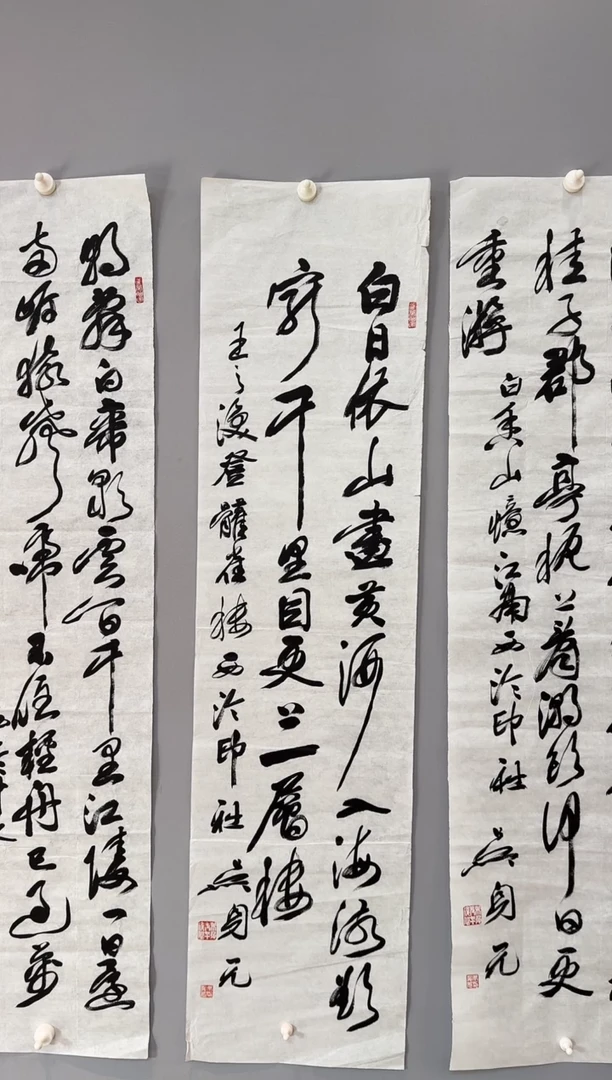 桂子郡亭枕上看潮頭何日更
重遊
白香山憶江南西泠印社
白日依山盡黃河入海流欲
窮千里目更上一層樓
王之渙登鸛雀樓西泠印社
朝辭白帝彩雲間千里江陵一日還
兩岸猿聲啼不住輕舟已過萬